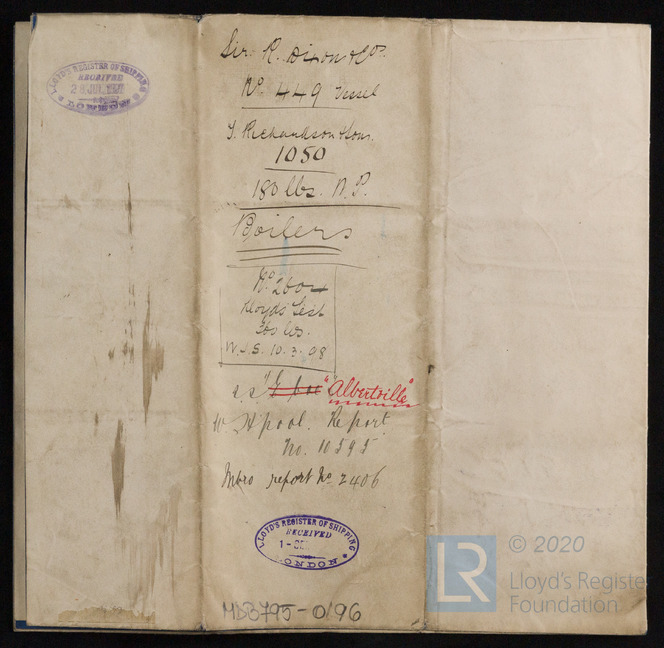 LLOYD'S REGISTER OF SHIPPING
RECEIVED
LONDON
Sir R. Dixon & Co.
No 449 Vessel
T. Richardson & Sons.
1050
180 lbs. W.P.
Boilers
No 2604
Lloyds Test
360 lbs.
W.J.S. 10.3.98
s s "Albertville"
W Hpool. Report
No. 10595
Mbro report No 2406
LLOYD'S REGISTER OF SHIPPING
RECEIVED
LONDON
MDB795-0196
LR
© 2020
Lloyd's Register
Foundation